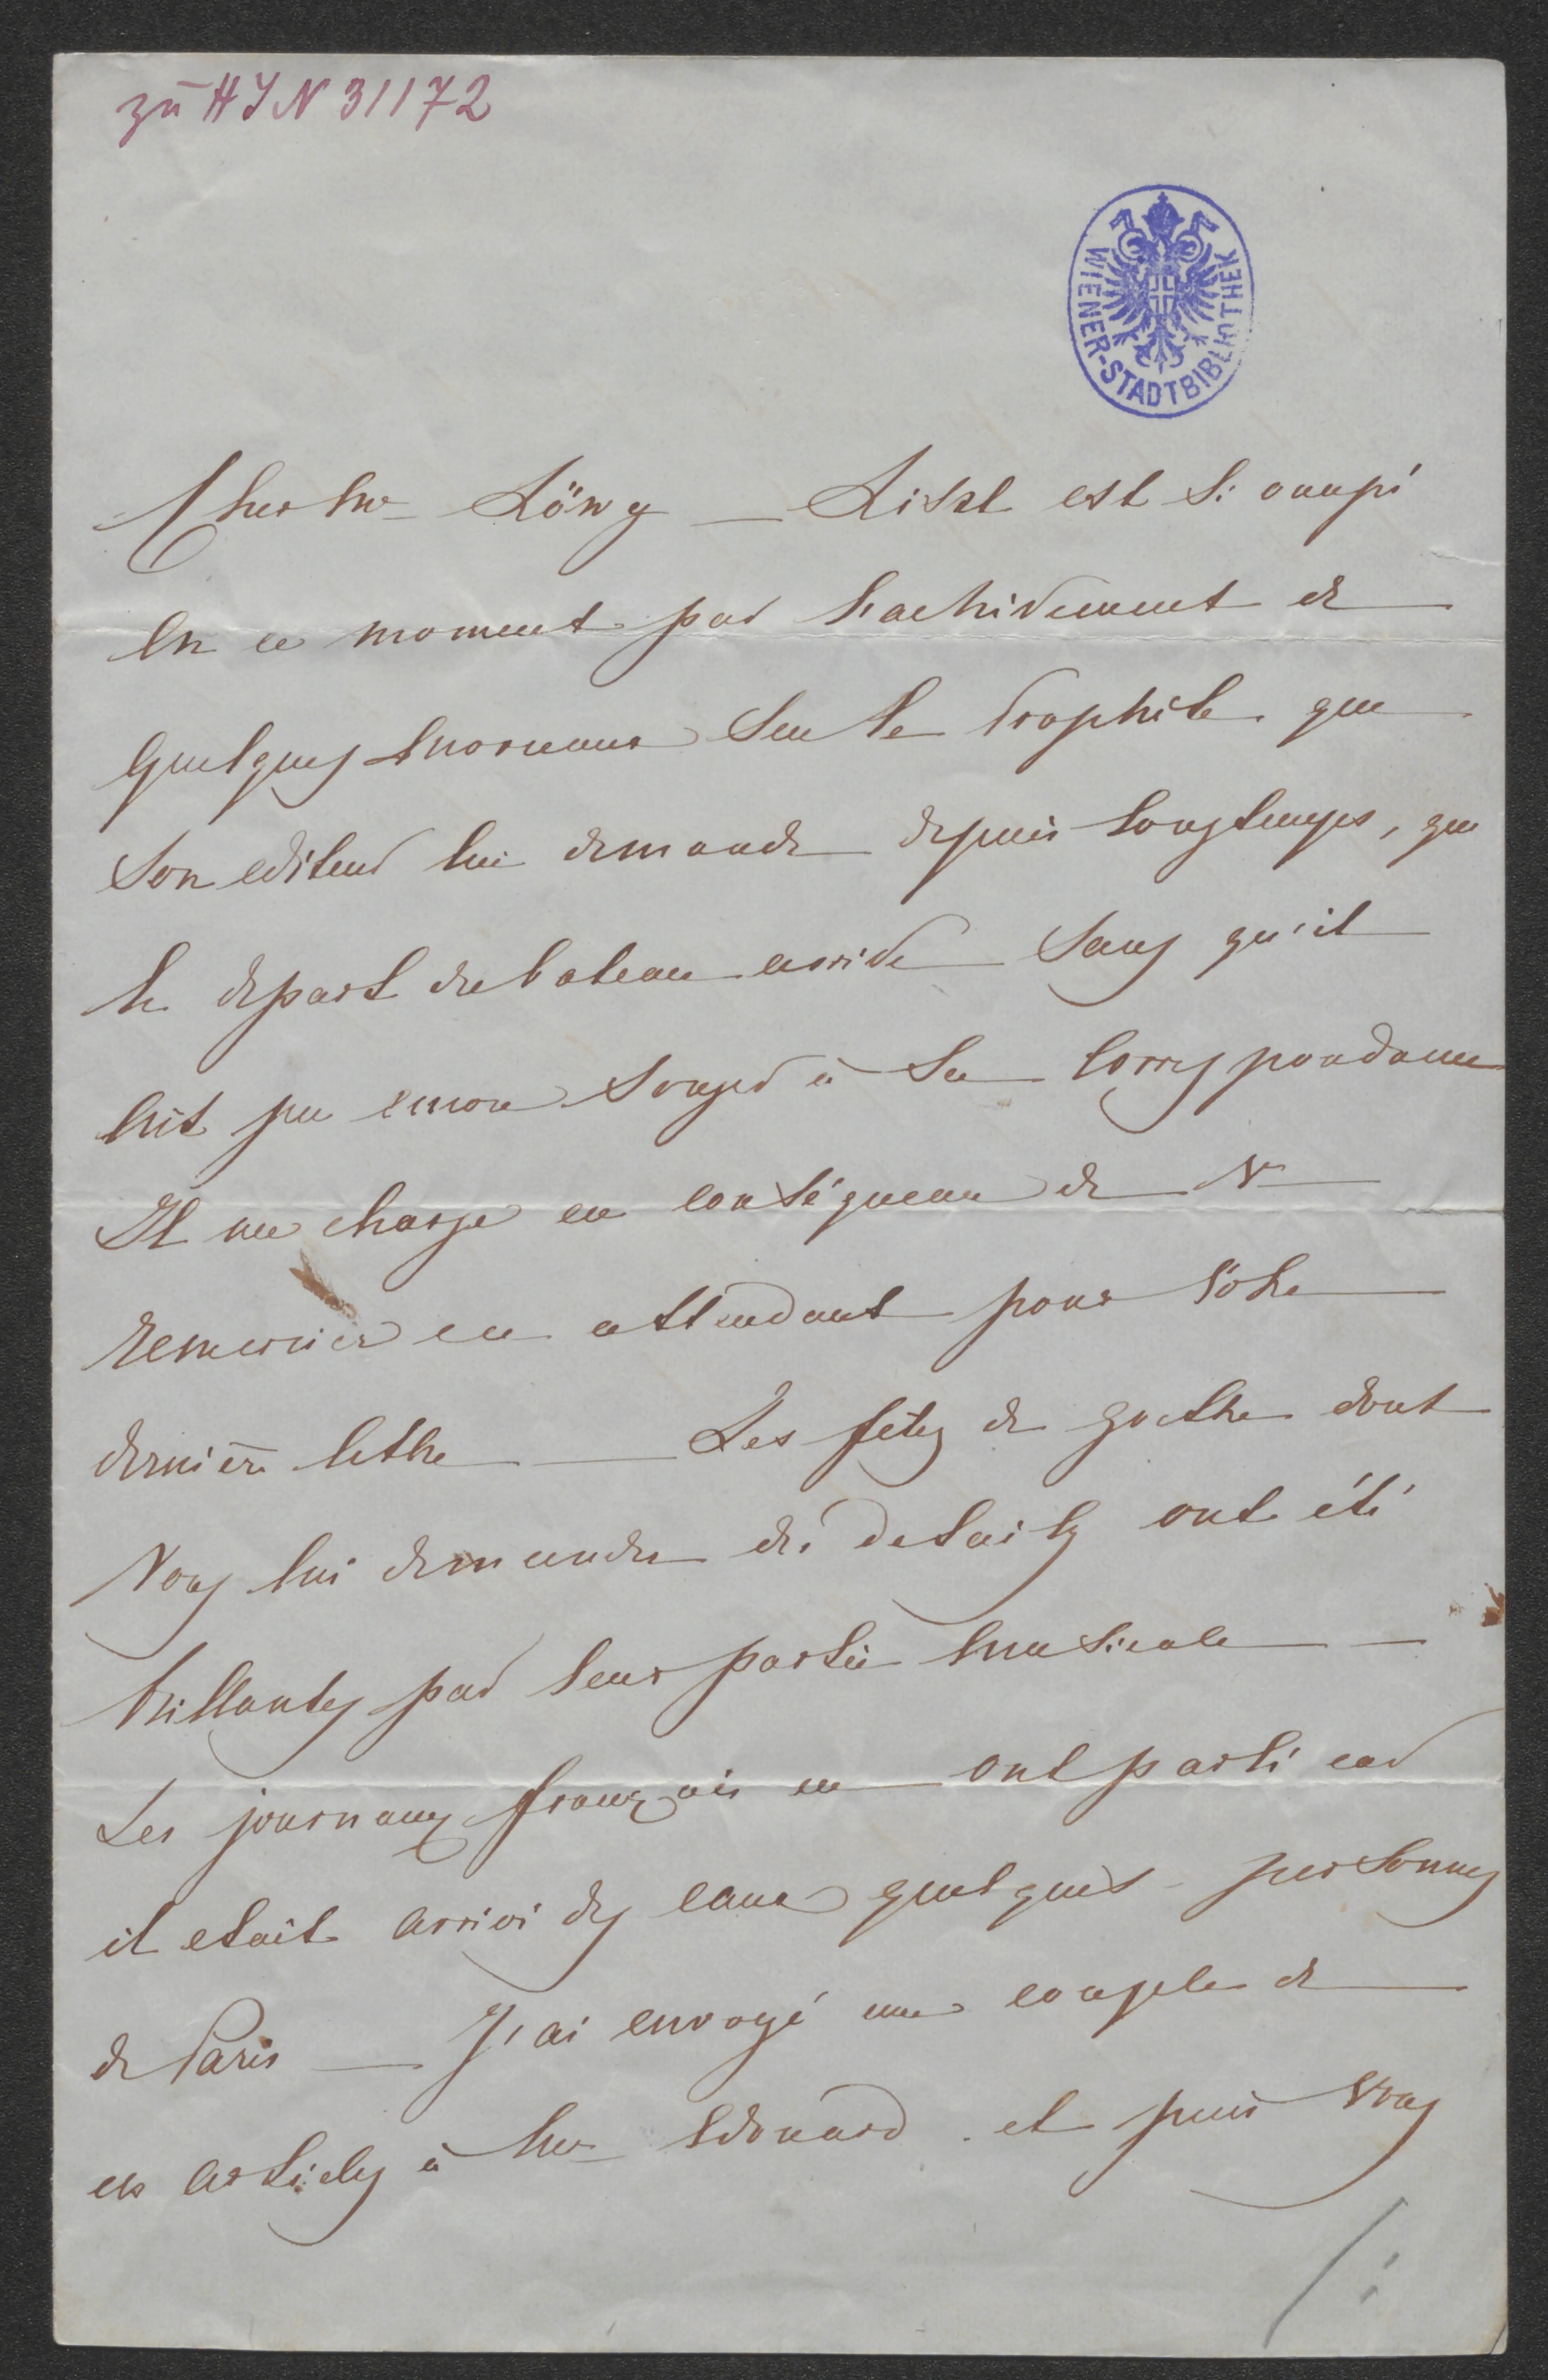 zu HIN 31172
WIENER-STADTBIBLIOTHEK
Cher Mr Löwy — Liszt est si occupé
en ce moment par l'achivement de
quelques morceaux sur le Prophète que
son editeur lui demande depuis longtemps, que
le depart du bateau arrive sans qu'il
eut pu encore songer à sa correspondance
Il me charge en conséquence de V
remercier en attendant pour votre
dernière lettre — Les fêtes de Goethe dont
Vous lui demandez des details ont été
brillantes par leur partie musicale —
Les journaux français en ont parlé car
il etait arrivé des eaux quelques personnes
de Paris — J'ai envoyé une couple de
ces articles à Mr Edouard. et puis Vous
/: